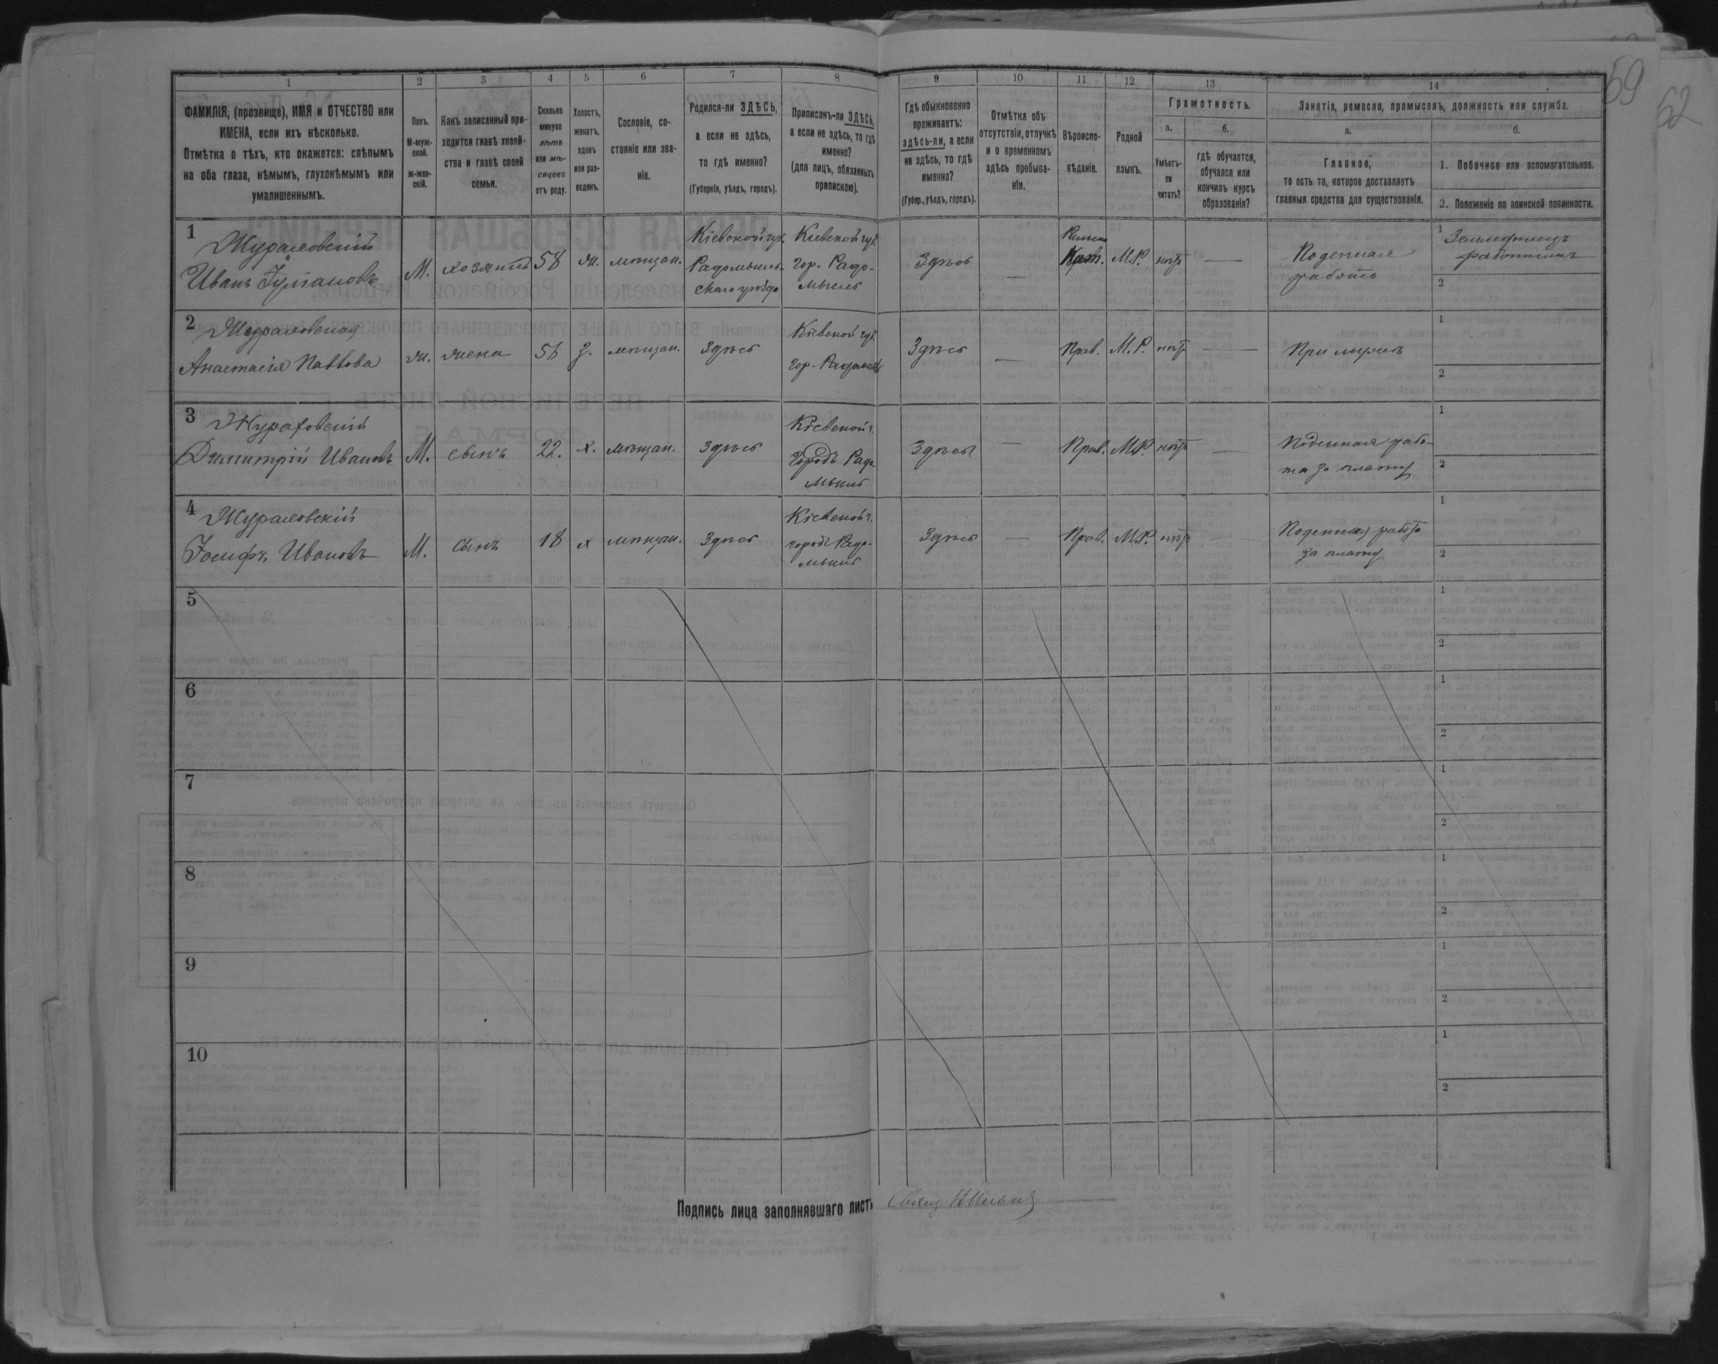 59
62
1 2 3 4 5 6 7 8 9 10 11 12 13 14
ФАМИЛІЯ, (прозвище), ИМЯ и ОТЧЕСТВО или ИМЕНА, если ихъ нѣсколько.
Отмѣтка о тѣхъ, кто окажется: слѣпымъ на оба глаза, нѣмымъ, глухонѣмымъ или умалишеннымъ.
Полъ.
М-муж-
ской.
ж-жен-
скій.
Какъ записанный при-
ходится главѣ хозяй-
ства и главѣ своей
семьи.
Сколько
минуло
лѣтъ
или мѣ-
сяцевъ
отъ роду.
Холостъ,
женатъ,
вдовъ
или раз-
веденъ.
Сословіе, со-
стояніе или зва-
ніе.
Родился-ли ЗДѢСЬ,
а если не здѣсь,
то гдѣ именно?
(Губернія, уѣздъ, городъ).
Приписанъ-ли ЗДѢСЬ,
а если не здѣсь, то гдѣ
именно?
(для лицъ, обязанныхъ
припискою).
Гдѣ обыкновенно
проживаетъ:
здѣсь-ли, а если
не здѣсь, то гдѣ
именно?
(Губер., уѣздъ, городъ).
Отмѣтка объ
отсутствіи, отлучкѣ
и о временномъ
здѣсь пребыва-
ніи.
Вѣроиспо-
вѣданіе.
Родной
языкъ.
Грамотность.
а.
Умѣетъ-
ли
читать?
б.
гдѣ обучается,
обучался или
кончилъ курсъ
образованія?
Занятіе, ремесло, промыселъ, должность или служба.
а.
Главное,
то есть то, которое доставляетъ
главныя средства для существованія.
б.
1. Побочное или вспомогательное.
2. Положеніе по воинской повинности.
1
Жураховскій
Иванъ
М. хозяинъ 58 ж. мѣщан.
Кіевской губ.
Радомысль-
скаго уѣзда
Кіевской губ.
гор. Радо-
мысль
Здѣсь —
Кат. М.Р. нѣтъ —
Поденная
работа
1
2
2
Жураховская
Анастасія Павлова
ж. жена 56 з. мѣщан. Здѣсь
Кіевской губ.
гор.
Здѣсь — Прав. М.Р. нѣтъ — При мужѣ
1
2
3
Жураховскій
Димитрій Ивановъ
М. сынъ 22. х. мѣщан. Здѣсь
Кіевской г.
городъ Радо-
мысль
Здѣсь — Прав. М.Р. нѣтъ —
Поденная рабо-
та за плату
1
2
4
Жураховскій
Іосифъ Ивановъ
М. сынъ 18 х мѣщан. Здѣсь
Кіевской г.
городъ Радо-
мысль
Здѣсь — Прав. М.Р. нѣтъ —
Поденная работа
за плату
1
2
5
1
2
6
1
2
7
1
2
8
1
2
9
1
2
10
1
2
Подпись лица заполнявшаго листъ